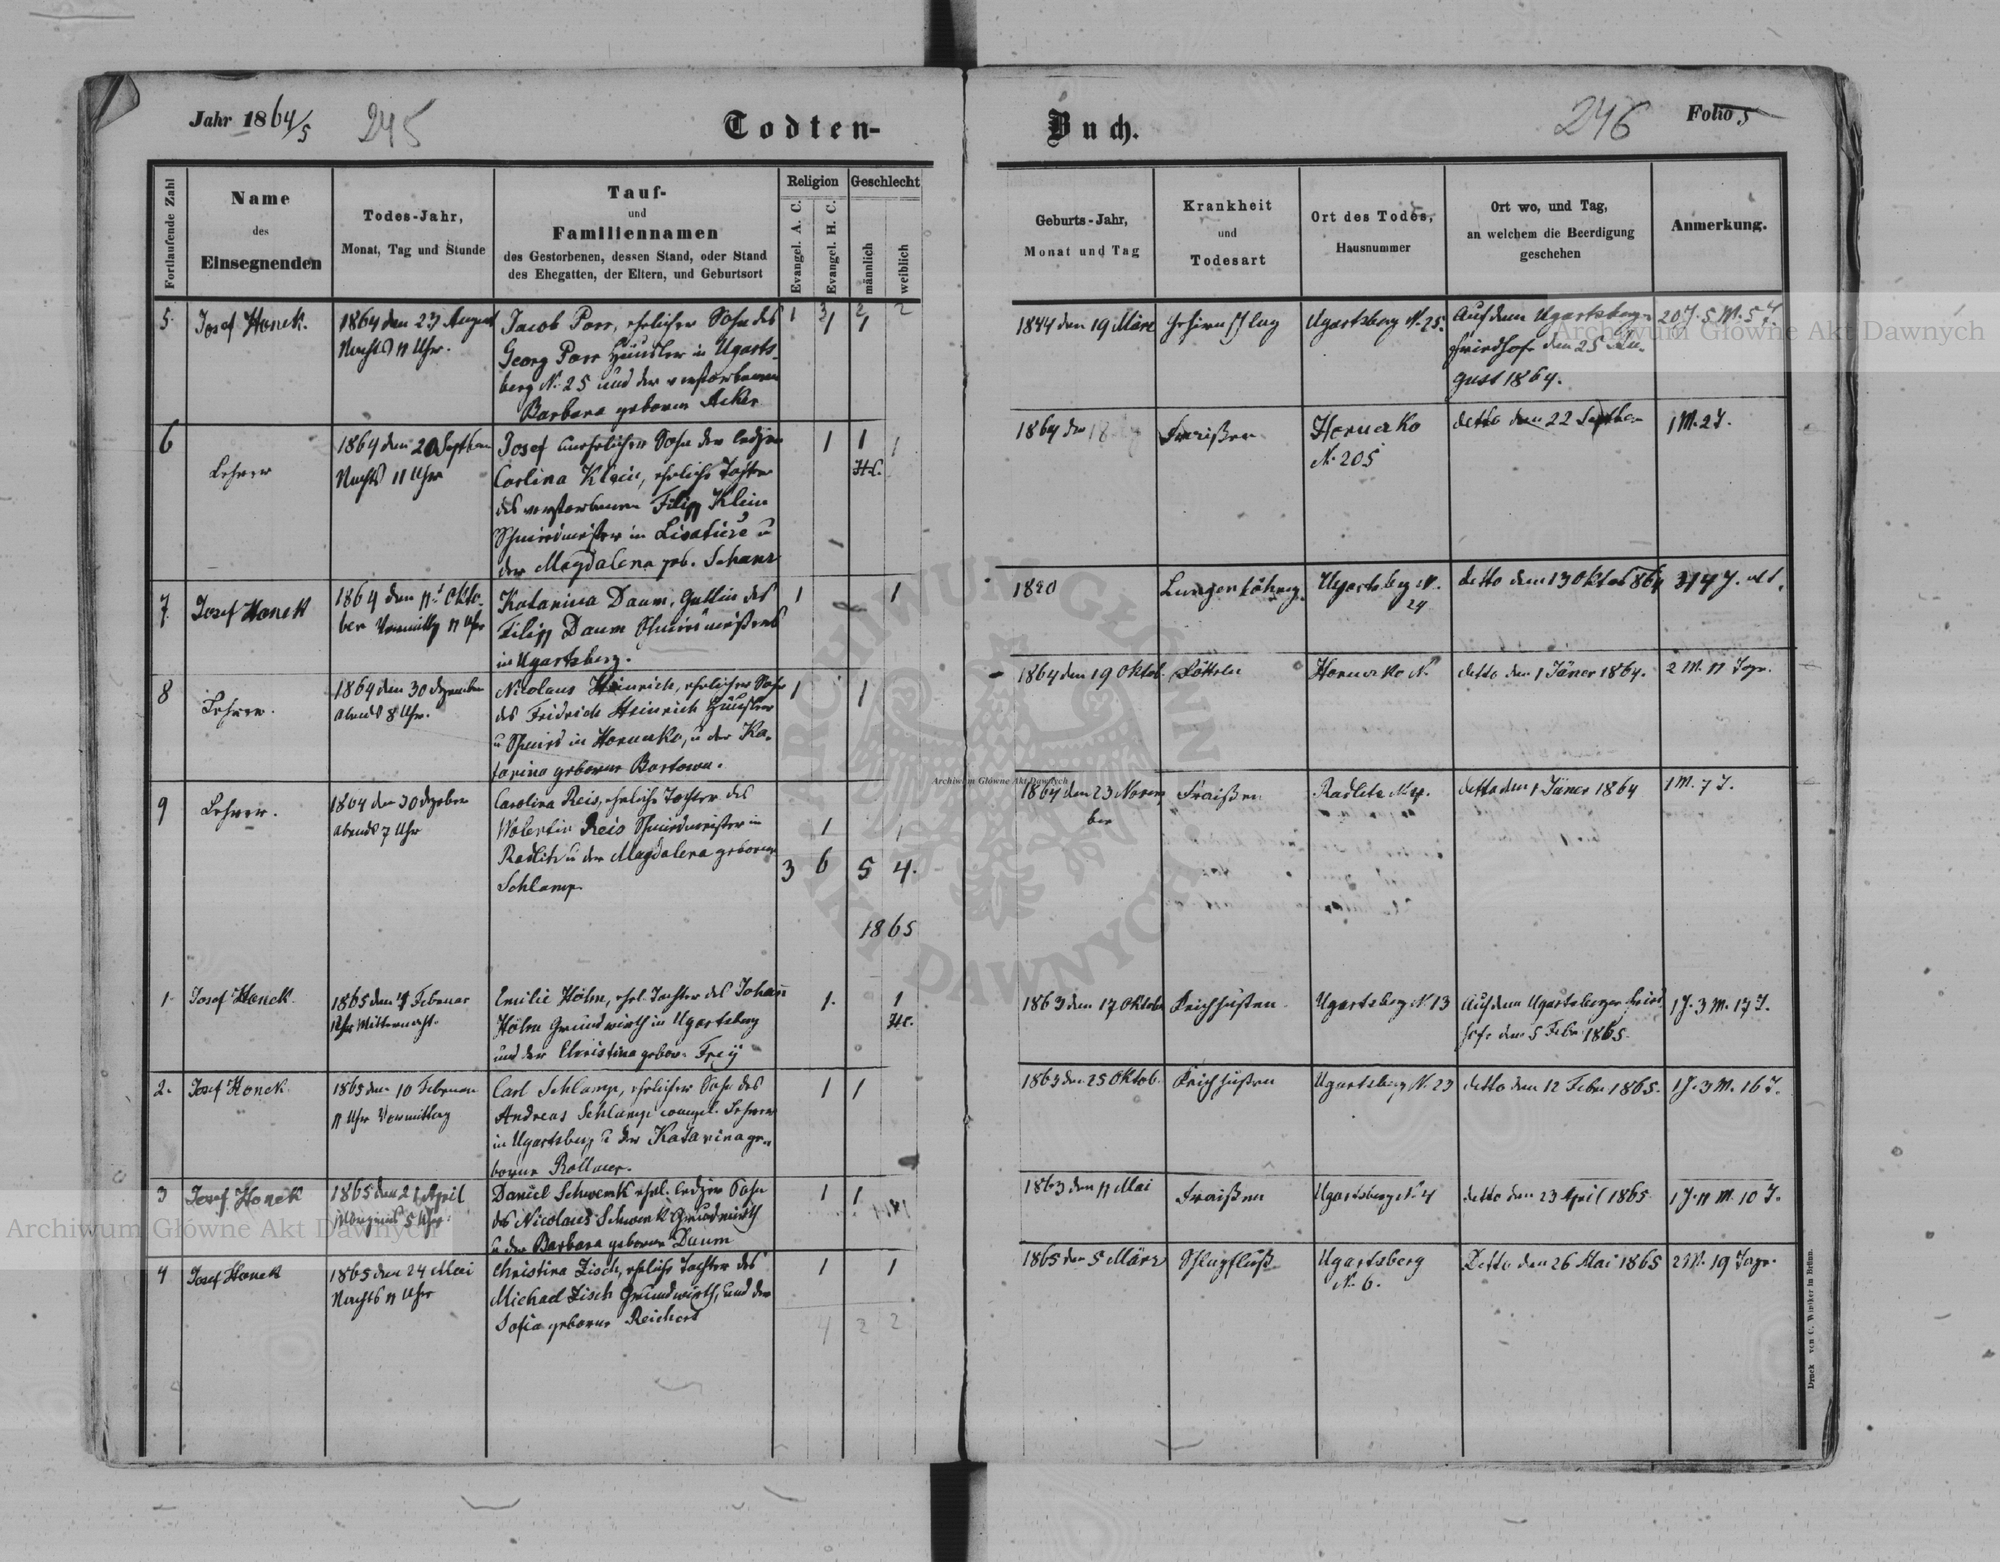 Jahr 1864/5
245
Todten-
Buch.
246
Folio 5
Fortlaufende Zahl
Name
des
Einsegnenden
Todes-Jahr,
Monat, Tag und Stunde
Tauf-
und
Familiennamen
des Gestorbenen, dessen Stand, oder Stand
des Ehegatten, der Eltern, und Geburtsort
Religion
Evangel. A. C.
Evangel. H. C.
Geschlecht
männlich
weiblich
Geburts-Jahr,
Monat und Tag
Krankheit
und
Todesart
Ort des Todes,
Hausnummer
Ort wo, und Tag,
an welchem die Beerdigung
geschehen
Anmerkung.
5.
Josef Honek.
1864 den 23 August
Nachts 11 Uhr.
Jacob Porr, ehelicher Sohn des
Georg Porr Häusler in Ugarts-
berg N. 25 und der verstorbenen
Barbara geboren Acker
1 3 2 2
1 1
1844 den 19 März
Gehirnschlag
Ugartsberg N. 25.
Auf dem Ugartsberger
Friedhofe den 25 Au-
gust 1864.
20 J. 5 M. 5 T.
6
Lehrer
1864 den 20 Septber
Nachts 11 Uhr
Josef unehelicher Sohn der ledigen
Carlina Klein, eheliche Tochter
des verstorbenen Filipp Klein
Schmiedmeister in
der Magdalena geb. Schanz
1 1 1
1864 den 18
Fraißen
Horucko
N. 205
detto den 22 Septber
1 M. 2 T.
7.
Josef Honek
1864 den 11t Okto-
ber Vormittg 11 Uhr
Katarina Daum, Gattin des
Filipp Daum Schmiedmeisters
in Ugartsberg.
1 1
1820
Ugartsberg N.
24
detto den 13 Oktob 864
44 J. alt.
8
Lehrer.
1864 den 30 Dezember
abends 8 Uhr.
Nicolaus Heinrich, ehelicher Sohn
des Fridrich Heinrich Häusler
u Schmied in Horucko, u der Ka-
tarina geborne Bartowa.
1 1
1864 den 19 Oktob.
Horucko N.
detto den 1 Jäner 1864.
2 M. 11 Tage.
9
Lehrer.
1864 den 30 Dezber
abends 7 Uhr
Carolina Reis, eheliche Tochter des
Walentin Reis Schmiedmeister in
Radlitz u der Magdalena geborne
Schlamp
1 1
3 6 5 4.
1864 den 23 Novem
ber
Fraißen
Radlitz N 4.
detto den 1 Jäner 1864
1 M. 7 T.
1865
1.
Josef Honek.
1865 den 4 Februar
Uhr Mitternacht.
Emilie Hölm, ehel. Tochter des Johann
Hölm Grundwirth in Ugartsberg
und der Christina gebor. Frey
1. 1
1863 den 17 Oktober
Keichhusten
Ugartsberg N. 13
Auf dem Ugartsberger Fried
hofe den 5 Febr 1865.
1 J. 3 M. 17 T.
2.
Josef Honek.
1865 den 10 Februar
11 Uhr Vormittag
Carl Schlamp, ehelicher Sohn des
Andreas Schlamp evangel. Lehrer
in Ugartsberg u der Katarina ge-
borne Rollauer.
1 1
1863 den 25 Oktob.
Keichhusten
Ugartsberg N. 23
detto den 12 Febr 1865.
1 J. 3 M. 16 T.
3
Josef Honek
1865 den 21 April
Morgens 5 Uhr.
Daniel Schwenk ehel. lediger Sohn
des Nicolaus Schwenk Grundwirth
u der Barbara geborne Daum
1 1
1863 den 11 Mai
Fraißen
Ugartsberg N. 4
detto den 23 April 1865
1 J. 11 M. 10 T.
4
Josef Honek
1865 den 24 Mai
Nachts 11 Uhr
Christina Zisch, eheliche Tochter des
Michael Zisch Grundwirth, und der
Sofia geborne Reichert
1 1
4 2 2
1865 den 5 März
Schlagfluß
Ugartsberg
N. 6.
Detto den 26 Mai 1865
2 M. 19 Tage.
Druck von C. Winiker in Brünn.
Archiwum Główne Akt Dawnych
Archiwum Główne Akt Dawnych
Archiwum Główne Akt Dawnych
ARCHIWUM GŁÓWNE AKT DAWNYCH